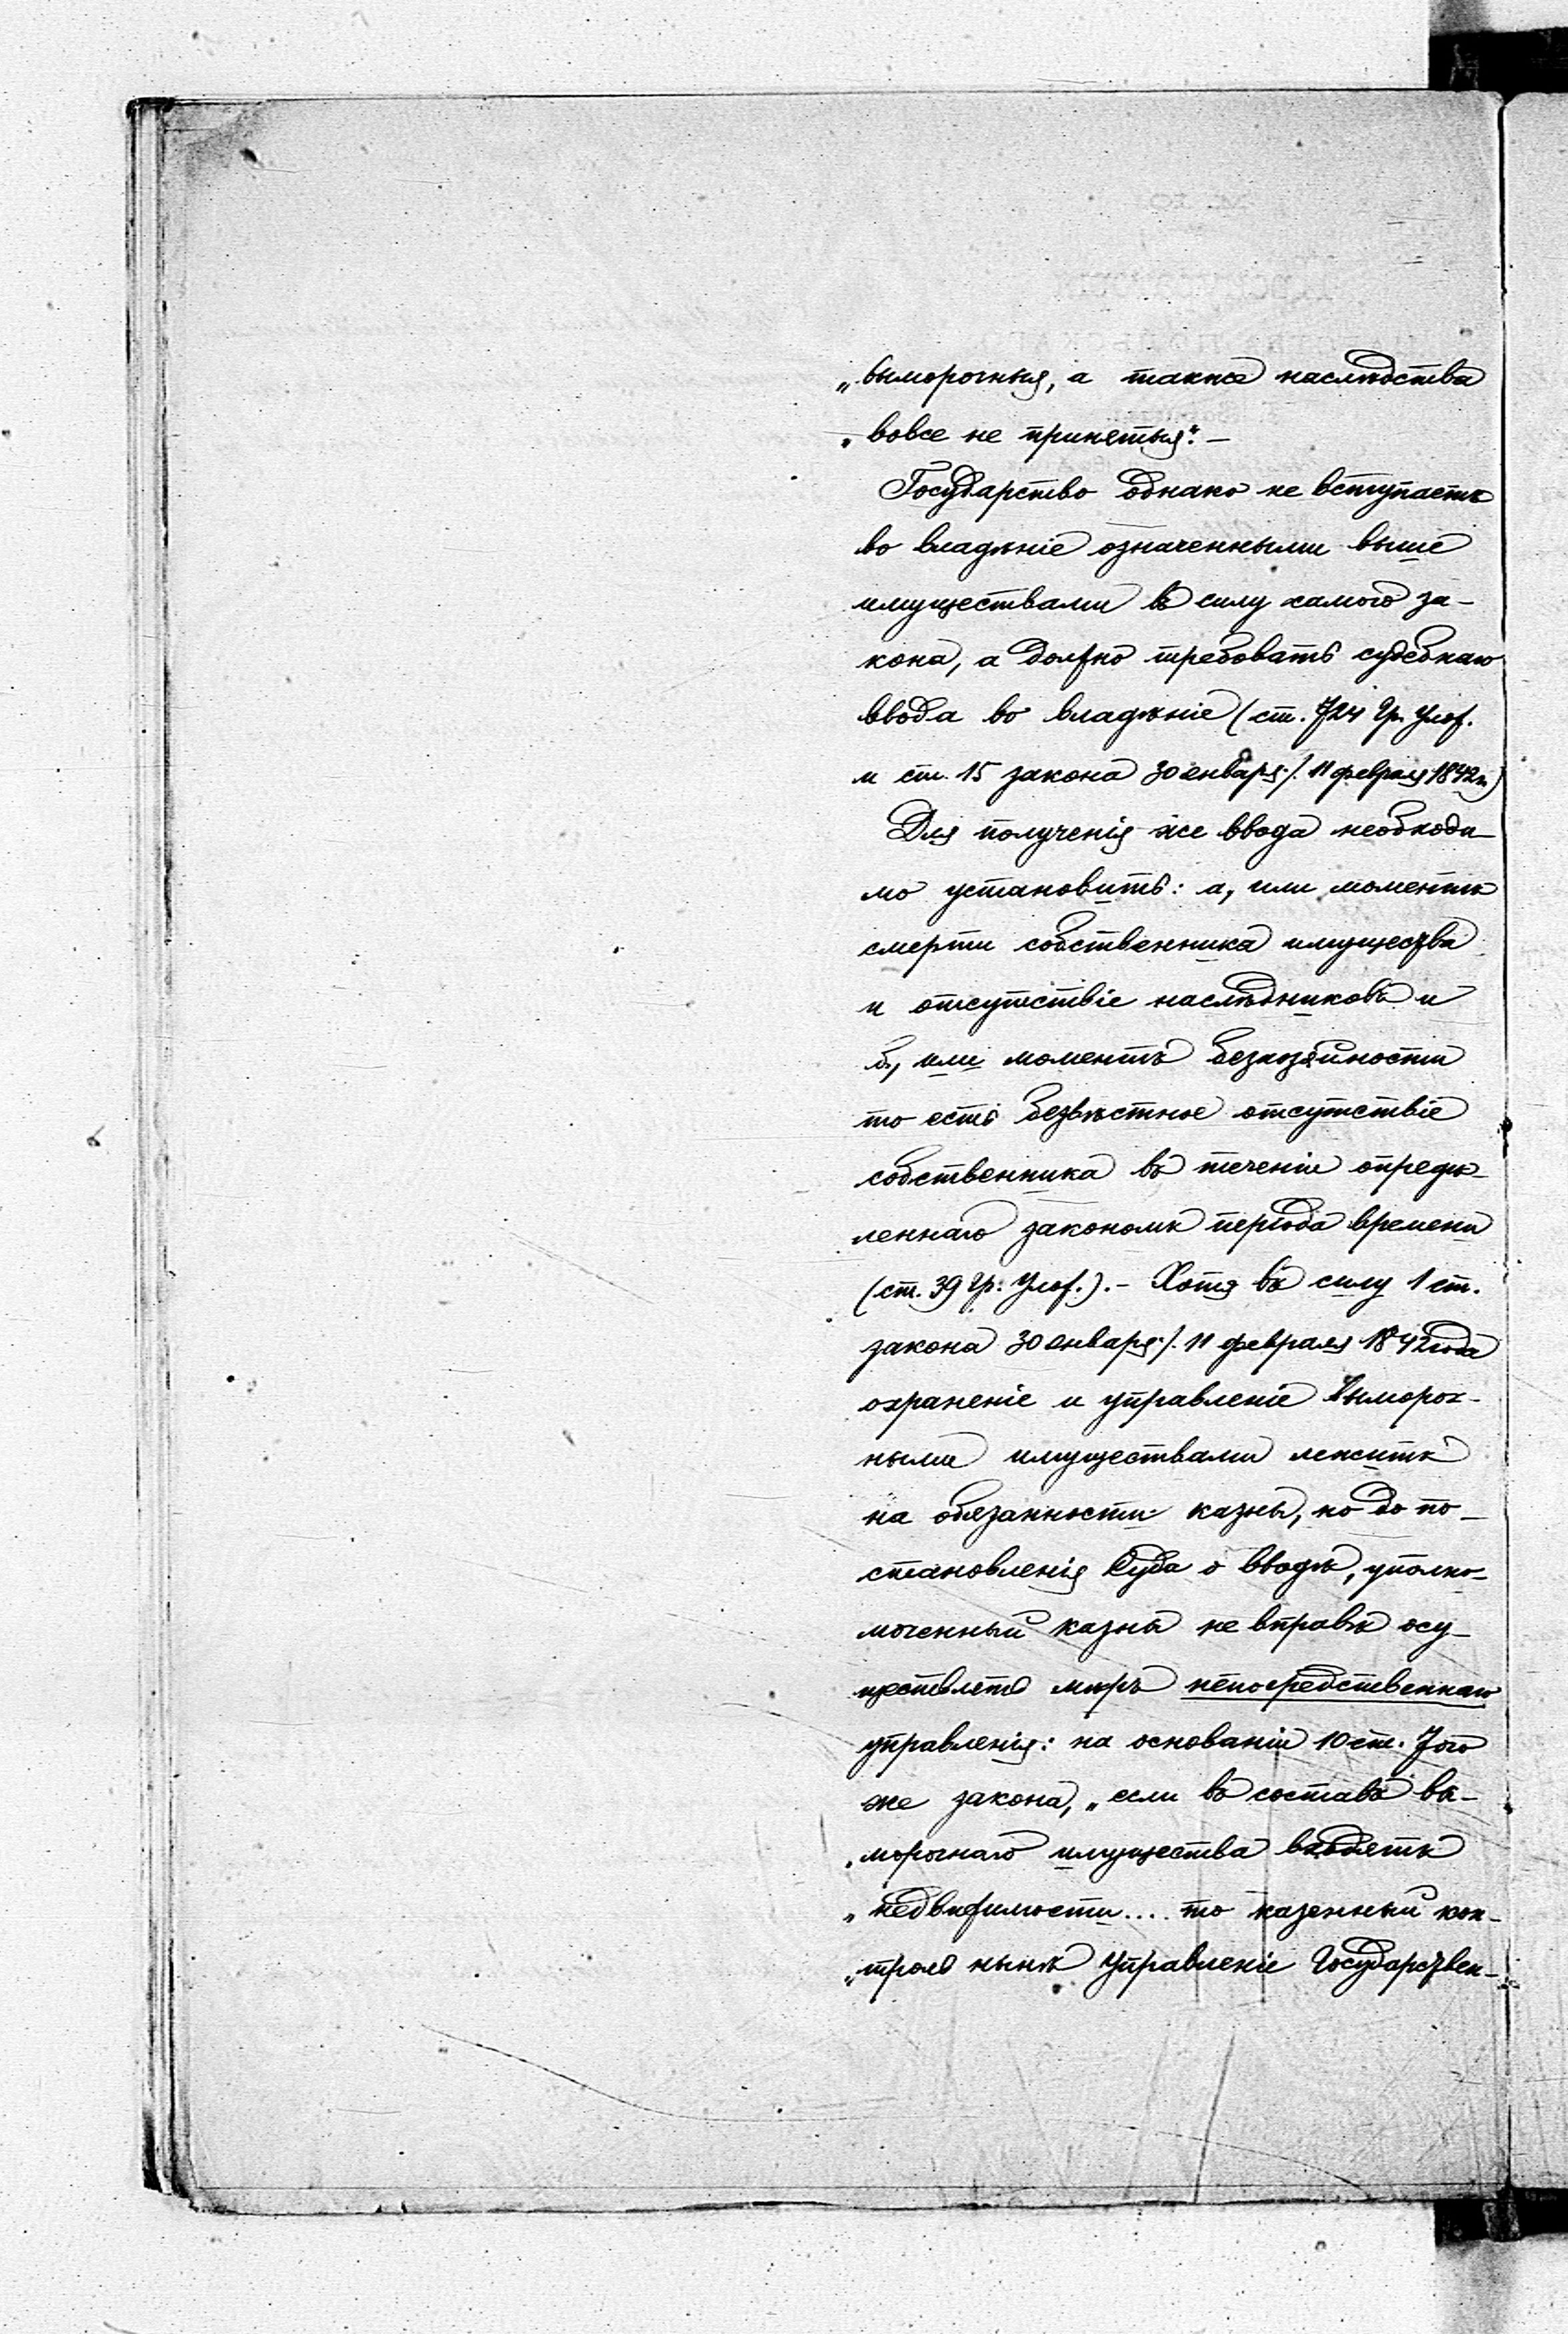 „выморочныя, а также наслѣдства
„вовсе не принятыя“. —
Государство однако не вступаетъ
во владѣніе означенными выше
имуществами въ силу самого за-
кона, а должно требовать судебнаго
ввода во владѣніе (ст. 724 Гр. Улож.
и ст. 15 закона 30 января/11 февраля 1842 г.)
Для полученія же ввода необходи-
мо установить: а, или моментъ
смерти собственника имущества
и отсутствіе наслѣдниковъ и
б, или моментъ безхозяйности
то есть безвѣстное отсутствіе
собственника въ теченіи опредѣ-
леннаго закономъ періода времени
(ст. 39 Гр. Улож.). — Хотя въ силу 1 ст.
закона 30 января/11 февраля 1842 года
охраненіе и управленіе вымороч-
ными имуществами лежитъ
на обязанности казны, но до по-
становленія Суда о вводѣ, уполно-
моченный казны не вправѣ осу-
ществлять мѣръ непосредственнаго
управленія: на основаніи 10 ст. того
же закона, „если въ составъ вы-
„морочнаго имущества входятъ
„недвижимости.... то казенный кон-
„троль нынѣ Управленіе Государствен-